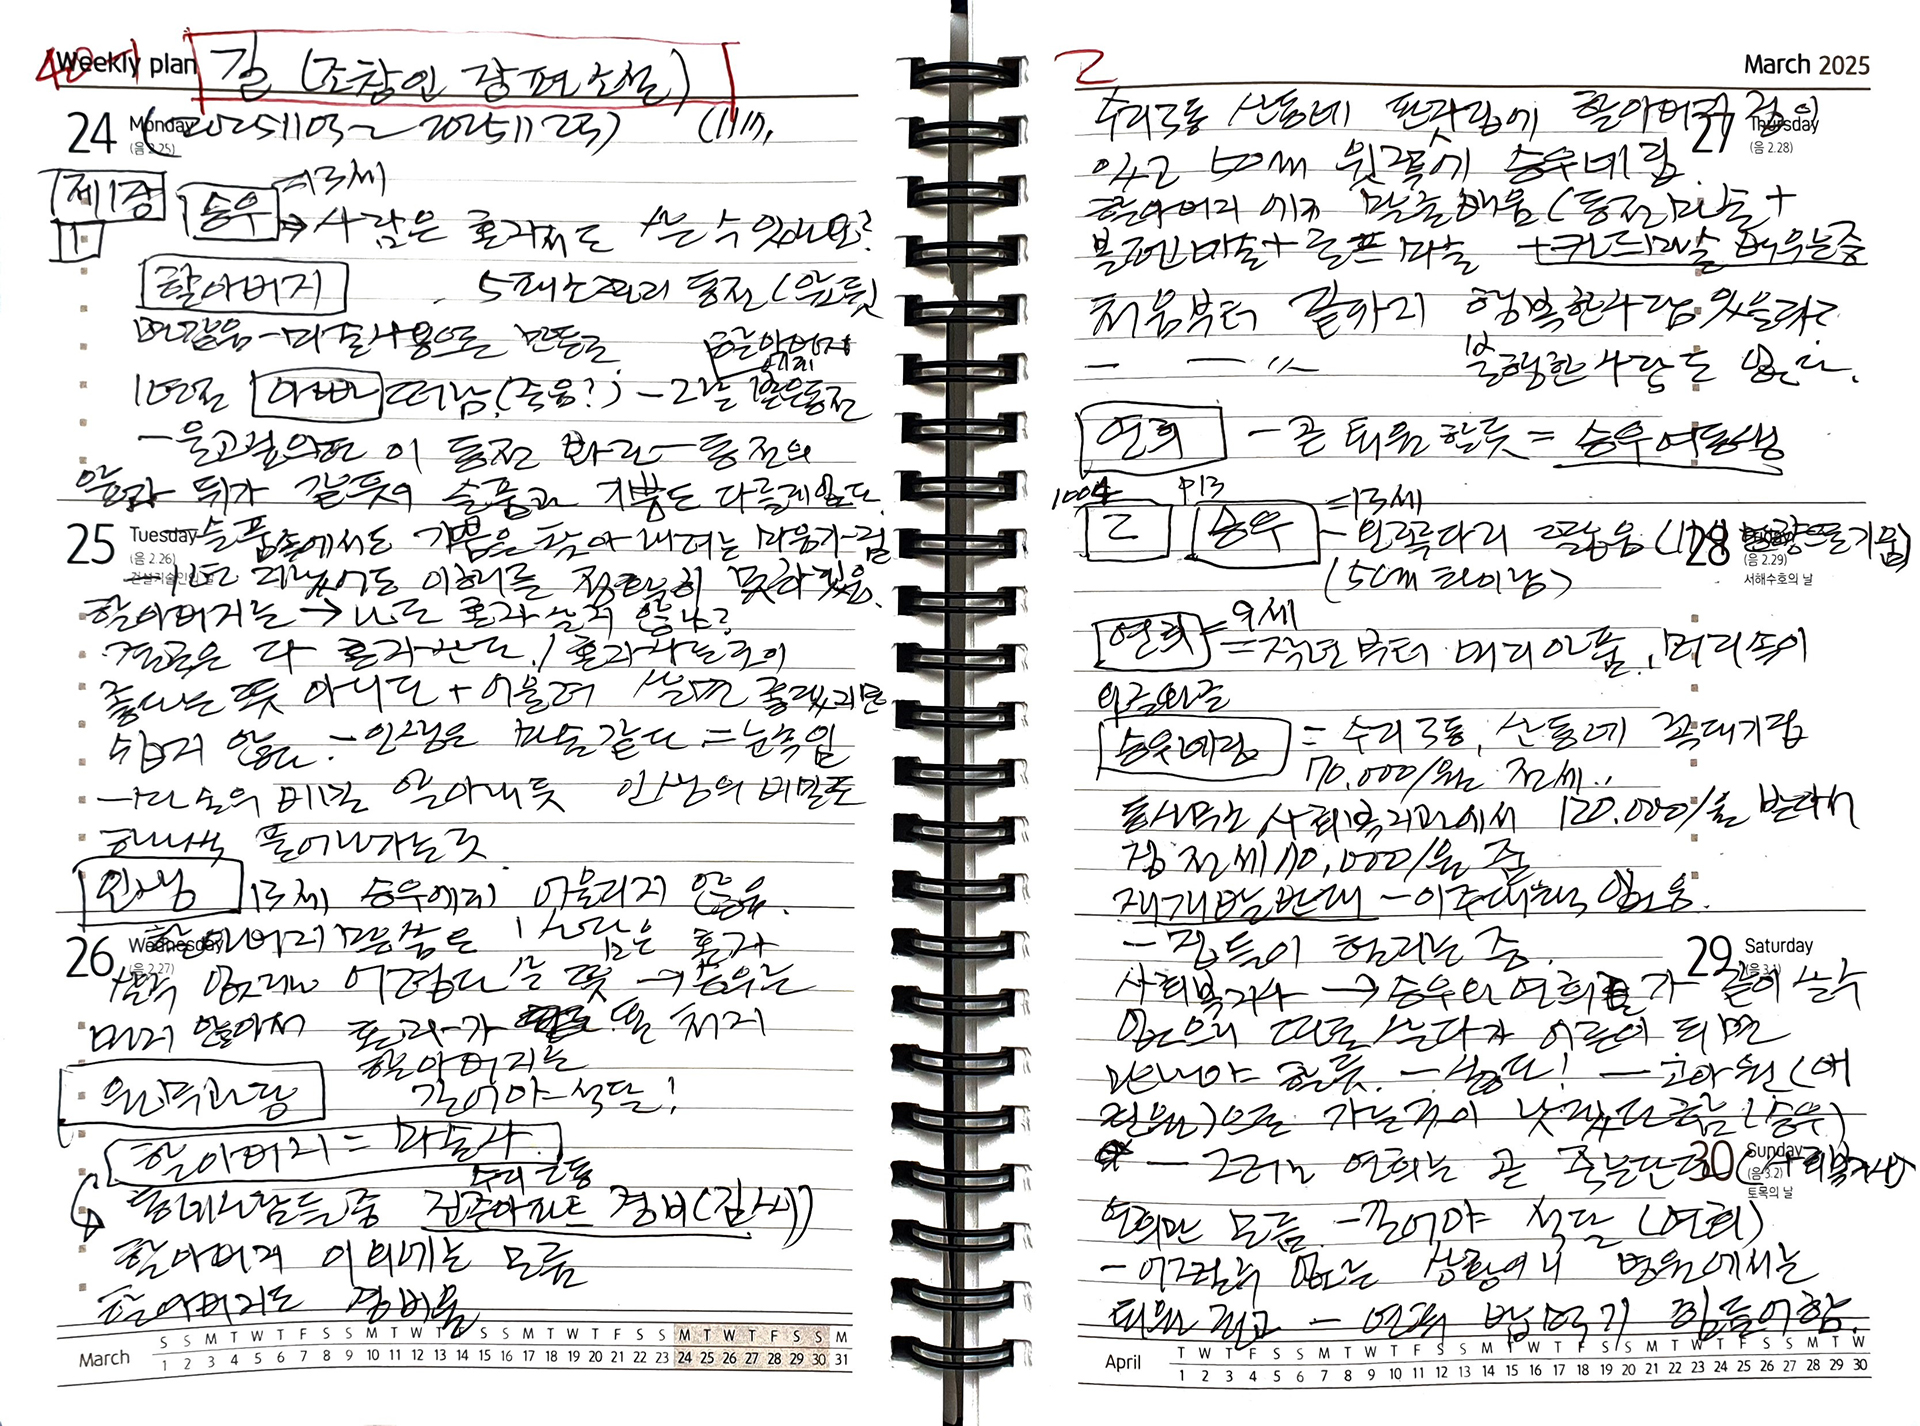 Weekly plan
길 (조창인 장편소설)
24 Monday (20251103~20251123)
(음 2.25)
제1장
1
승우 =13세
→ 사람은 혼자서도 사는 수 있나요?
할아버지 5페소짜리 동전 (앞뒷
면 같음 - 마술사용으로 만듦
1년전 아빠 떠남 (죽음?) - 그날 받은 동전
할아버지
에게
- 울고 싶으면 이 동전 봐라 - 동전의
앞과 뒤가 같듯이 슬픔과 기쁨도 다를게 없다
25 Tuesday 슬픔속에서도 기쁨은 찾아내려는 마음가짐
(음 2.26)
건설기술인의 날
1년 지났어도 이해를 정확히 못하 있음.
할아버지는 → 너도 혼자 살지 않나?
결국은 다 혼자란다! 혼자 사는 것이
좋다는 뜻 아니다 + 어울려 살면 좋겠지만
쉽지 않다. - 인생은 마술같다 = 눈속임
마술의 비밀 알아내듯 인생의 비밀도
하나씩 풀어나가는 것
인생 13세 승우에게 어울리지 않음.
26 Wednesday
(음 2.27)
할아버지 말씀은 '사람은 혼자
살 수 있거나 어렵다'는 뜻 → 승우는
머지 않아서 혼자가 될 처지
할아버지는
원숭무과당 길어야 석달!
할아버지 = 마술사
수리2동
동네사람들 중 진준아파트 경비(김씨)
할아버지 이외에는 모름
할아버지도 경비일
March
S S M T W T F S S M T W T F S S M T W T F S S M T W T F S S M
1 2 3 4 5 6 7 8 9 10 11 12 13 14 15 16 17 18 19 20 21 22 23 24 25 26 27 28 29 30 31
2
March 2025
수리3동 산동네 판잣집에 할아버지 집이
27 Thursday
(음 2.28)
있고 50m 윗쪽에 승우네 집
할아버지에게 마술 배움 (동전마술 +
볼펜마술 + 로프마술 + 카드마술 배우는중
처음부터 끝까지 행복한 사람 있을라?
— — 〃 불행한 사람도 없다.
연희 - 곧 퇴원할듯 = 승우여동생
1004 P13
2 승우 =13세
- 왼쪽다리 짧음
(5cm 차이남)
28
(음 2.29)
서해수호의 날
연희 = 9세
= 작년부터 머리아픔, 머리속이
승우네집 = 수리3동, 산동네 꼭대기집
70,000/월 전세..
동사무소 사회복지과에서 120,000/월 받아서
집 전세 70,000/월 줌
재개발 반대 - 이주대책 없음.
- 집들이 헐리는 중.
29 Saturday
사회복지사 → 승우와 연희가 같이 살수
없으니 따로 살다가 어른이 되면
만나야 할듯. - 싫다! - 고아원 (애
원)으로 가는 것이 낫겠다고 함 (승우)
30 Sunday
(음 3.2)
토목의 날
- 그러나 연희는 곧 죽는단다 (사회복지사)
연희만 모름 - 길어야 석달 (연희)
- 어쩔수 없는 상황이니 병원에서는
퇴원 권고 - 연희 밥먹기 힘들어함.
April
T W T F S S M T W T F S S M T W T F S S M T W T F S S M T W
1 2 3 4 5 6 7 8 9 10 11 12 13 14 15 16 17 18 19 20 21 22 23 24 25 26 27 28 29 30